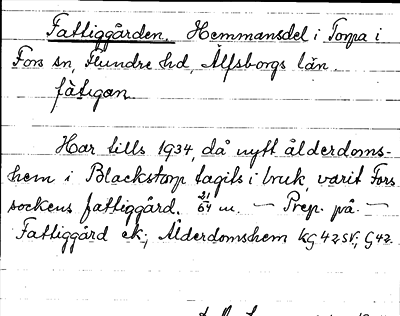 Fattiggården. Hemmansdel i Torpa i
Fors sn, Flundre hd, Älfsborgs län.
fàtigan.
Har tills 1934, då nytt ålderdoms-
hem i Blackstorp tagits i bruk, varit Fors
sockens fattiggård. 21/64 m. — Prep. på. —
Fattiggård ek; Ålderdomshem KG 42 sv; G 42.